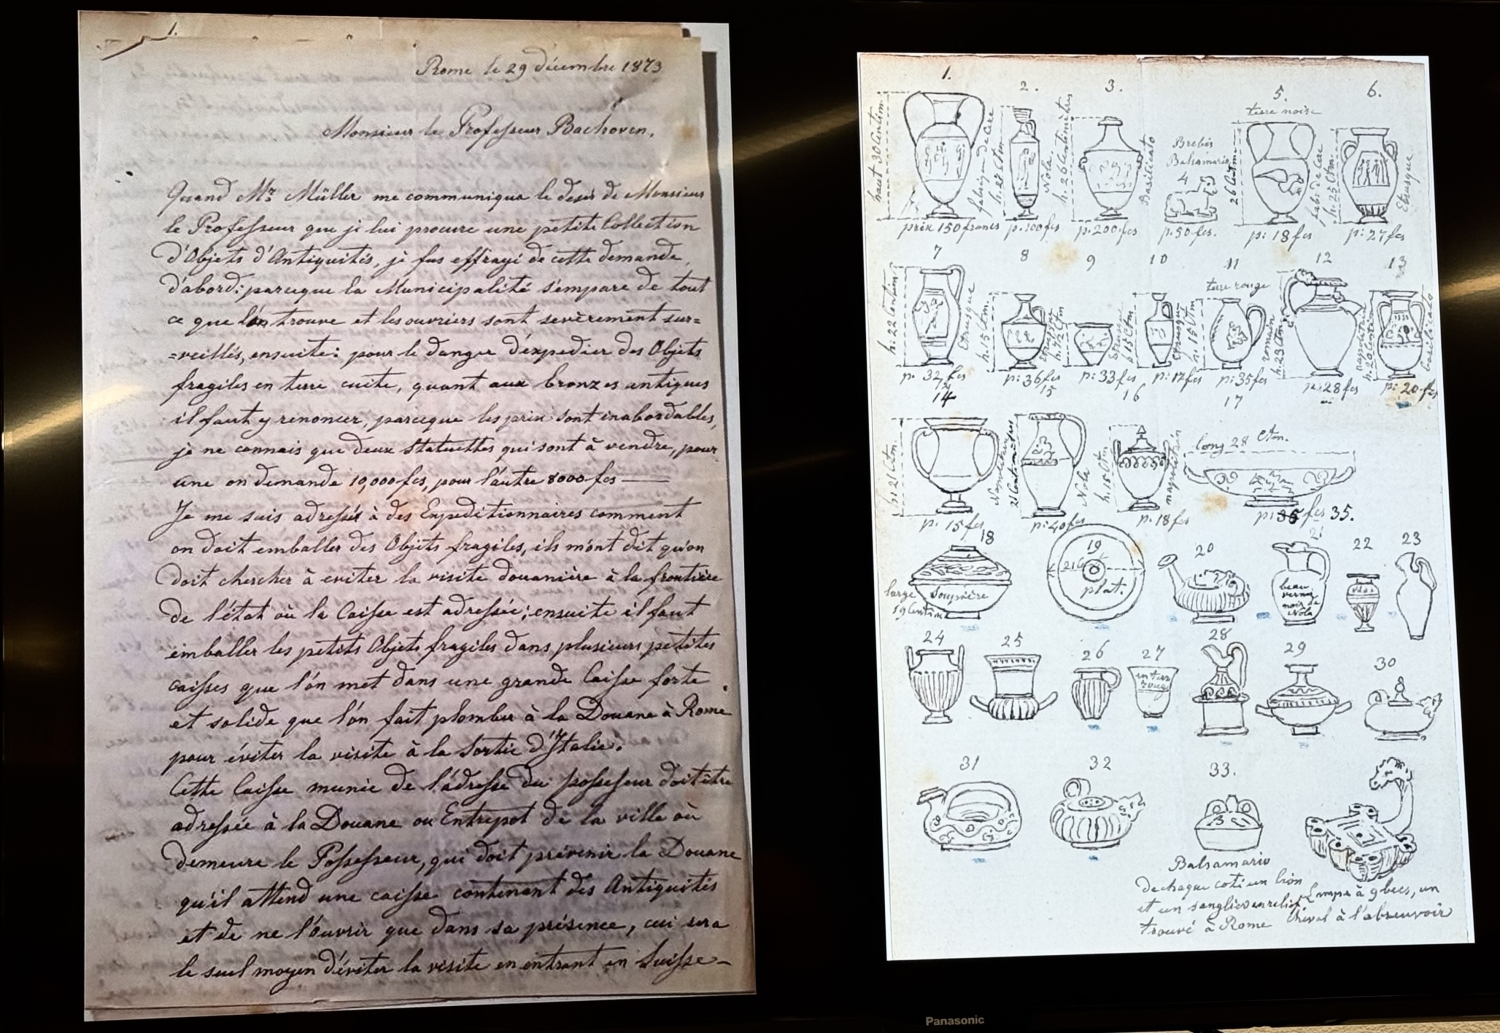 1.
Rome le 29 décembre 1873
Monsieur le Professeur Bachoven,
Quand Mr Müller me communiqua le desir de Monsieur
le Professeur que je lui procure une petite Collection
d'Objets d'Antiquités, je fus effrayé de cette demande,
d'abord: parceque la Municipalité s'empare de tout
ce que l'on trouve et les ouvriers sont sevèrement sur=
=veillés, ensuite: pour le danger d'expedier des Objets
fragiles en terre cuite, quant aux bronzes antiques
il faut y renoncer, parceque les prix sont inabordables,
je ne connais que deux Statuettes qui sont à vendre, pour
une on demande 10,000 fcs, pour l'autre 8000 fcs —
Je me suis adressé à des Expeditionnaires comment
on doit emballer des Objets fragiles, ils m'ont dit qu'on
doit chercher à eviter la visite douanière à la frontière
de l'état où la Caisse est adressée; ensuite il faut
emballer les petits Objets fragiles dans plusieurs petites
caisses que l'on met dans une grande Caisse forte
et solide que l'on fait plomber à la Douane à Rome
pour éviter la visite à la Sortie d'Italie.
Cette Caisse munie de l'adresse du possesseur doit être
adressée à la Douane ou Entrepot de la ville où
demeure le Possesseur, qui doit prévenir la Douane
qu'il attend une caisse contenant des Antiquités
et de ne l'ouvrir que dans sa présence, cui sera
le seul moyen d'éviter la visite en entrant en Suisse —
1. 2. 3. 5. 6.
terre noire
haut 30 Centim.
h. 27 Ctm
Nola
h. 26 Centimètres
Basilicato
Brebis
Balsamario
4
26 Centim
h. 25 Ctm.
Etrusque
prix 150 francs p. 100 fcs p: 200 fcs. p. 50 fcs. p: 18 fcs p: 27 fcs
7 8 9 10 11 12 13
terre rouge
h: 22 Centim.
Etrusque
h. 15 Ctm.
h. 15 Ctm
h. 23 Ctm
h. 20 Centim
p. 32 fcs p: 36 fcs p: 33 fcs p: 17 fcs p: 35 fcs p: 28 fcs p: 20 fcs
14 15 16 17
h: 21 Ctm.
Napolitain
21 Centimètres
Nola
napolitain
long 28 Ctm.
p: 15 fcs p: 40 fcs p: 18 fcs fcs 35.
18 19 20 21. 22 23
large Soupière
19 Centim
plat.
beau
vernis
noir de
Nola
24 25 26 27 28 29 30
en terre
rouge
31 32 33.
Balsamario
de chaque coté un lion
et un sanglier en relief
trouvé à Rome
Lampe à 9 becs, un
cheval à l'abreuvoir
Panasonic